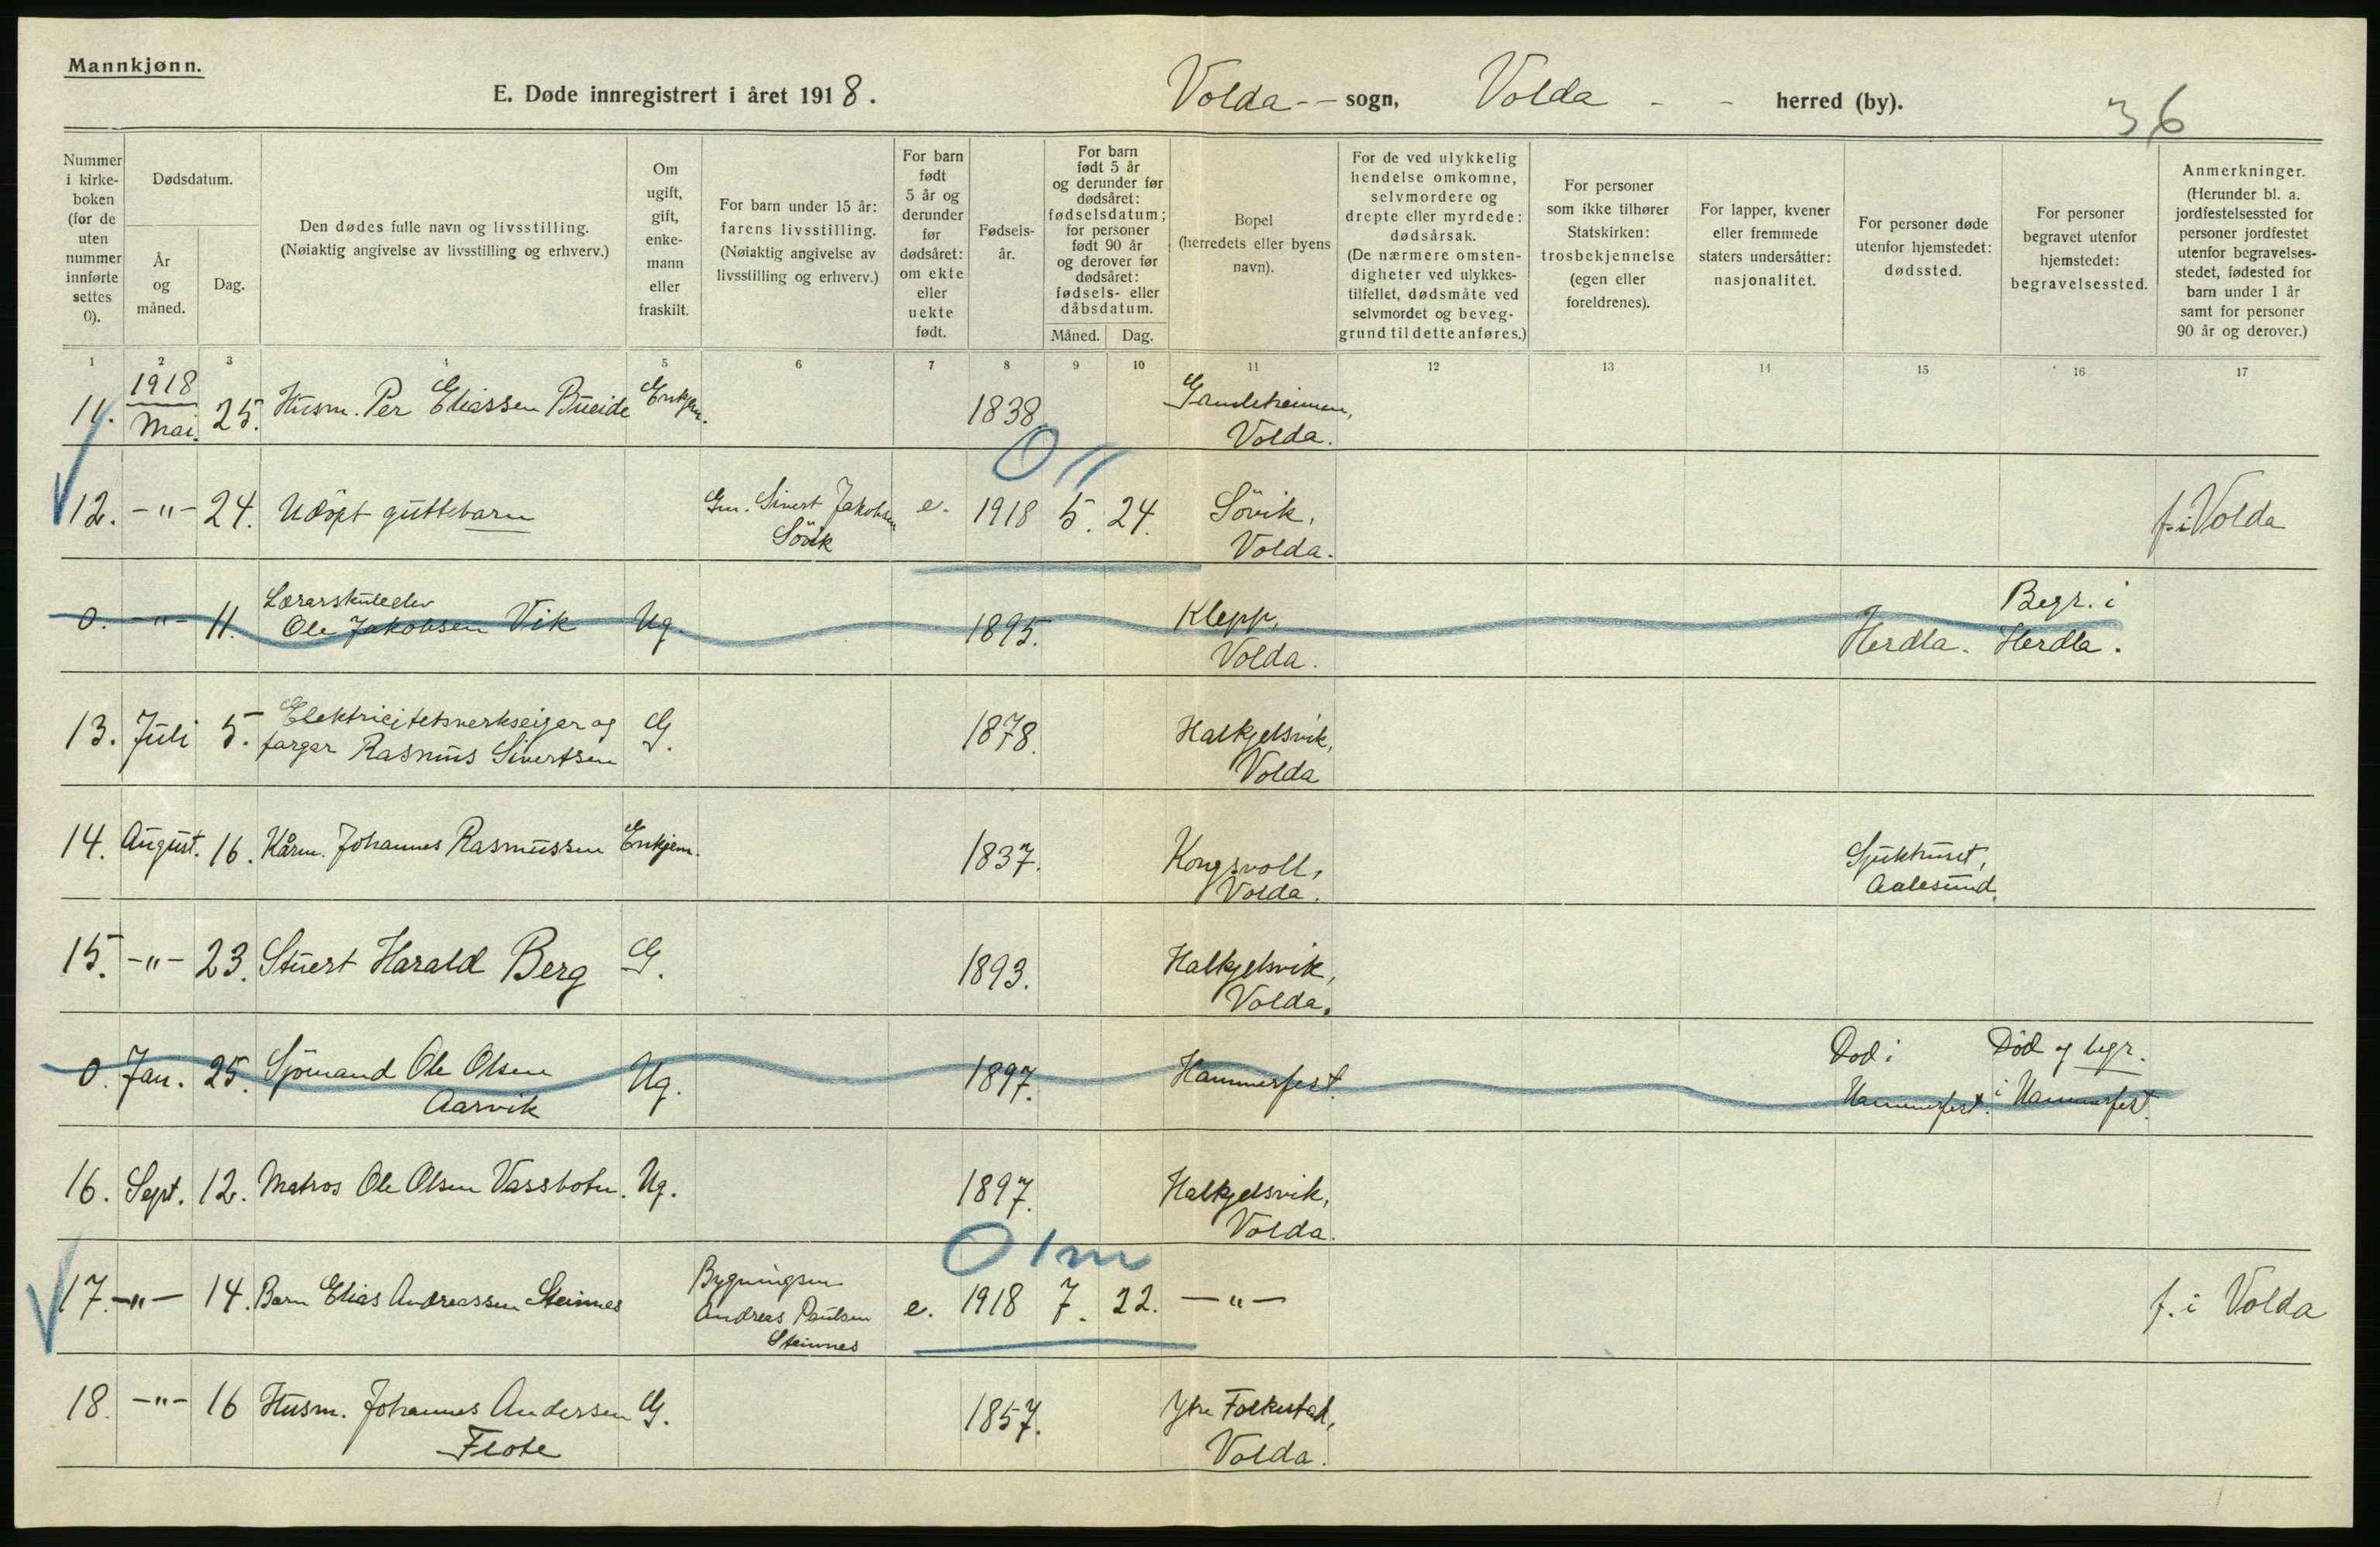 Mannkjønn.
E. Døde innregistrert i året 1918.
Volda - - sogn, Volda - - herred (by).
36
Nummer i kirkeboken (for de uten nummer innførte settes 0).
Dødsdatum.
År og måned.
Dag.
Den dødes fulle navn og livsstilling. (Nøiaktig angivelse av livsstilling og erhverv.)
Om ugift, gift, enkemann eller fraskilt.
For barn under 15 år: farens livsstilling. (Nøiaktig angivelse av livsstilling og erhverv.)
For barn født 5 år og derunder før dødsåret: om ekte eller uekte født.
Fødselsår.
For barn født 5 år og derunder før dødsåret: fødselsdatum; for personer født 90 år og derover før dødsåret: fødsels- eller dåbsdatum.
Måned.
Dag.
Bopel (herredets eller byens navn).
For de ved ulykkelig hendelse omkomne, selvmordere og drepte eller myrdede: dødsårsak. (De nærmere omstendigheter ved ulykkestilfellet, dødsmåte ved selvmordet og beveggrund til dette anføres.)
For personer som ikke tilhører Statskirken: trosbekjennelse (egen eller foreldrenes).
For lapper, kvener eller fremmede staters undersåtter: nasjonalitet.
For personer døde utenfor hjemstedet: dødssted.
For personer begravet utenfor hjemstedet: begravelsessted.
Anmerkninger. (Herunder bl. a. jordfestelsessted for personer jordfestet utenfor begravelsesstedet, fødested for barn under 1 år samt for personer 90 år og derover.)
1 2 3 4 5 6 7 8 9 10 11 12 13 14 15 16 17
11. 1918 Mai. 25. Husm. Per Eliassen Bueide Enkjem. 1838. Volda.
12. -"- 24. Udöpt guttebarn Gm. Sivert Jakobsen Sövik e. 1918 5. 24. Sövik, Volda. f. i Volda
0. -"- 11. Lærarskuleelev Ole Jakobsen Vik Ug. 1895. Klepp, Volda. Herdla. Begr. i Herdla.
13. Juli 5. Elektricitetsverkseigar og fargar Rasmus Sivertsen G. 1878. Halkjelsvik, Volda
14. August. 16. Kårm. Johannes Rasmussen Enkjem. 1837. Kongsvoll, Volda. Sjukhuset, Aalesund.
15. -"- 23. Stuert Harald Berg G. 1893. Halkjelsvik, Volda.
0. Jan. 25. Sjömand Ole Olsen Aarvik Ug. 1897. Hammerfest. Död i Hammerfest. Död og begr. i Hammerfest.
16. Sept. 12. Matros Ole Olsen Vassbotn. Ug. 1897. Halkjelsvik, Volda.
0 1m
17. -"- 14. Barn Elias Andreassen Steinnes Bygningsm Andreas Paulsen Steinnes e. 1918 7. 22. -"- f. i Volda
18. -"- 16 Husm. Johannes Andersen Flote G. 1857. Ytre Folkestad, Volda.